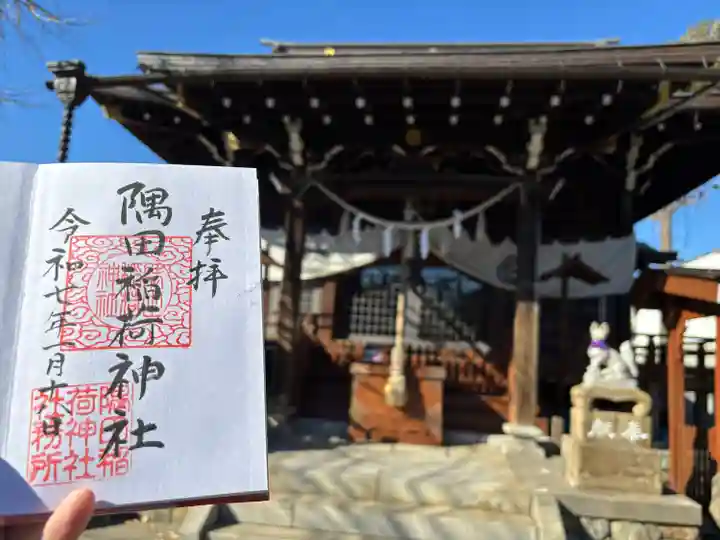 奉拝
隅田稲荷神社
令和七年一月六日
隅田稲
荷神社
社務所
奉献